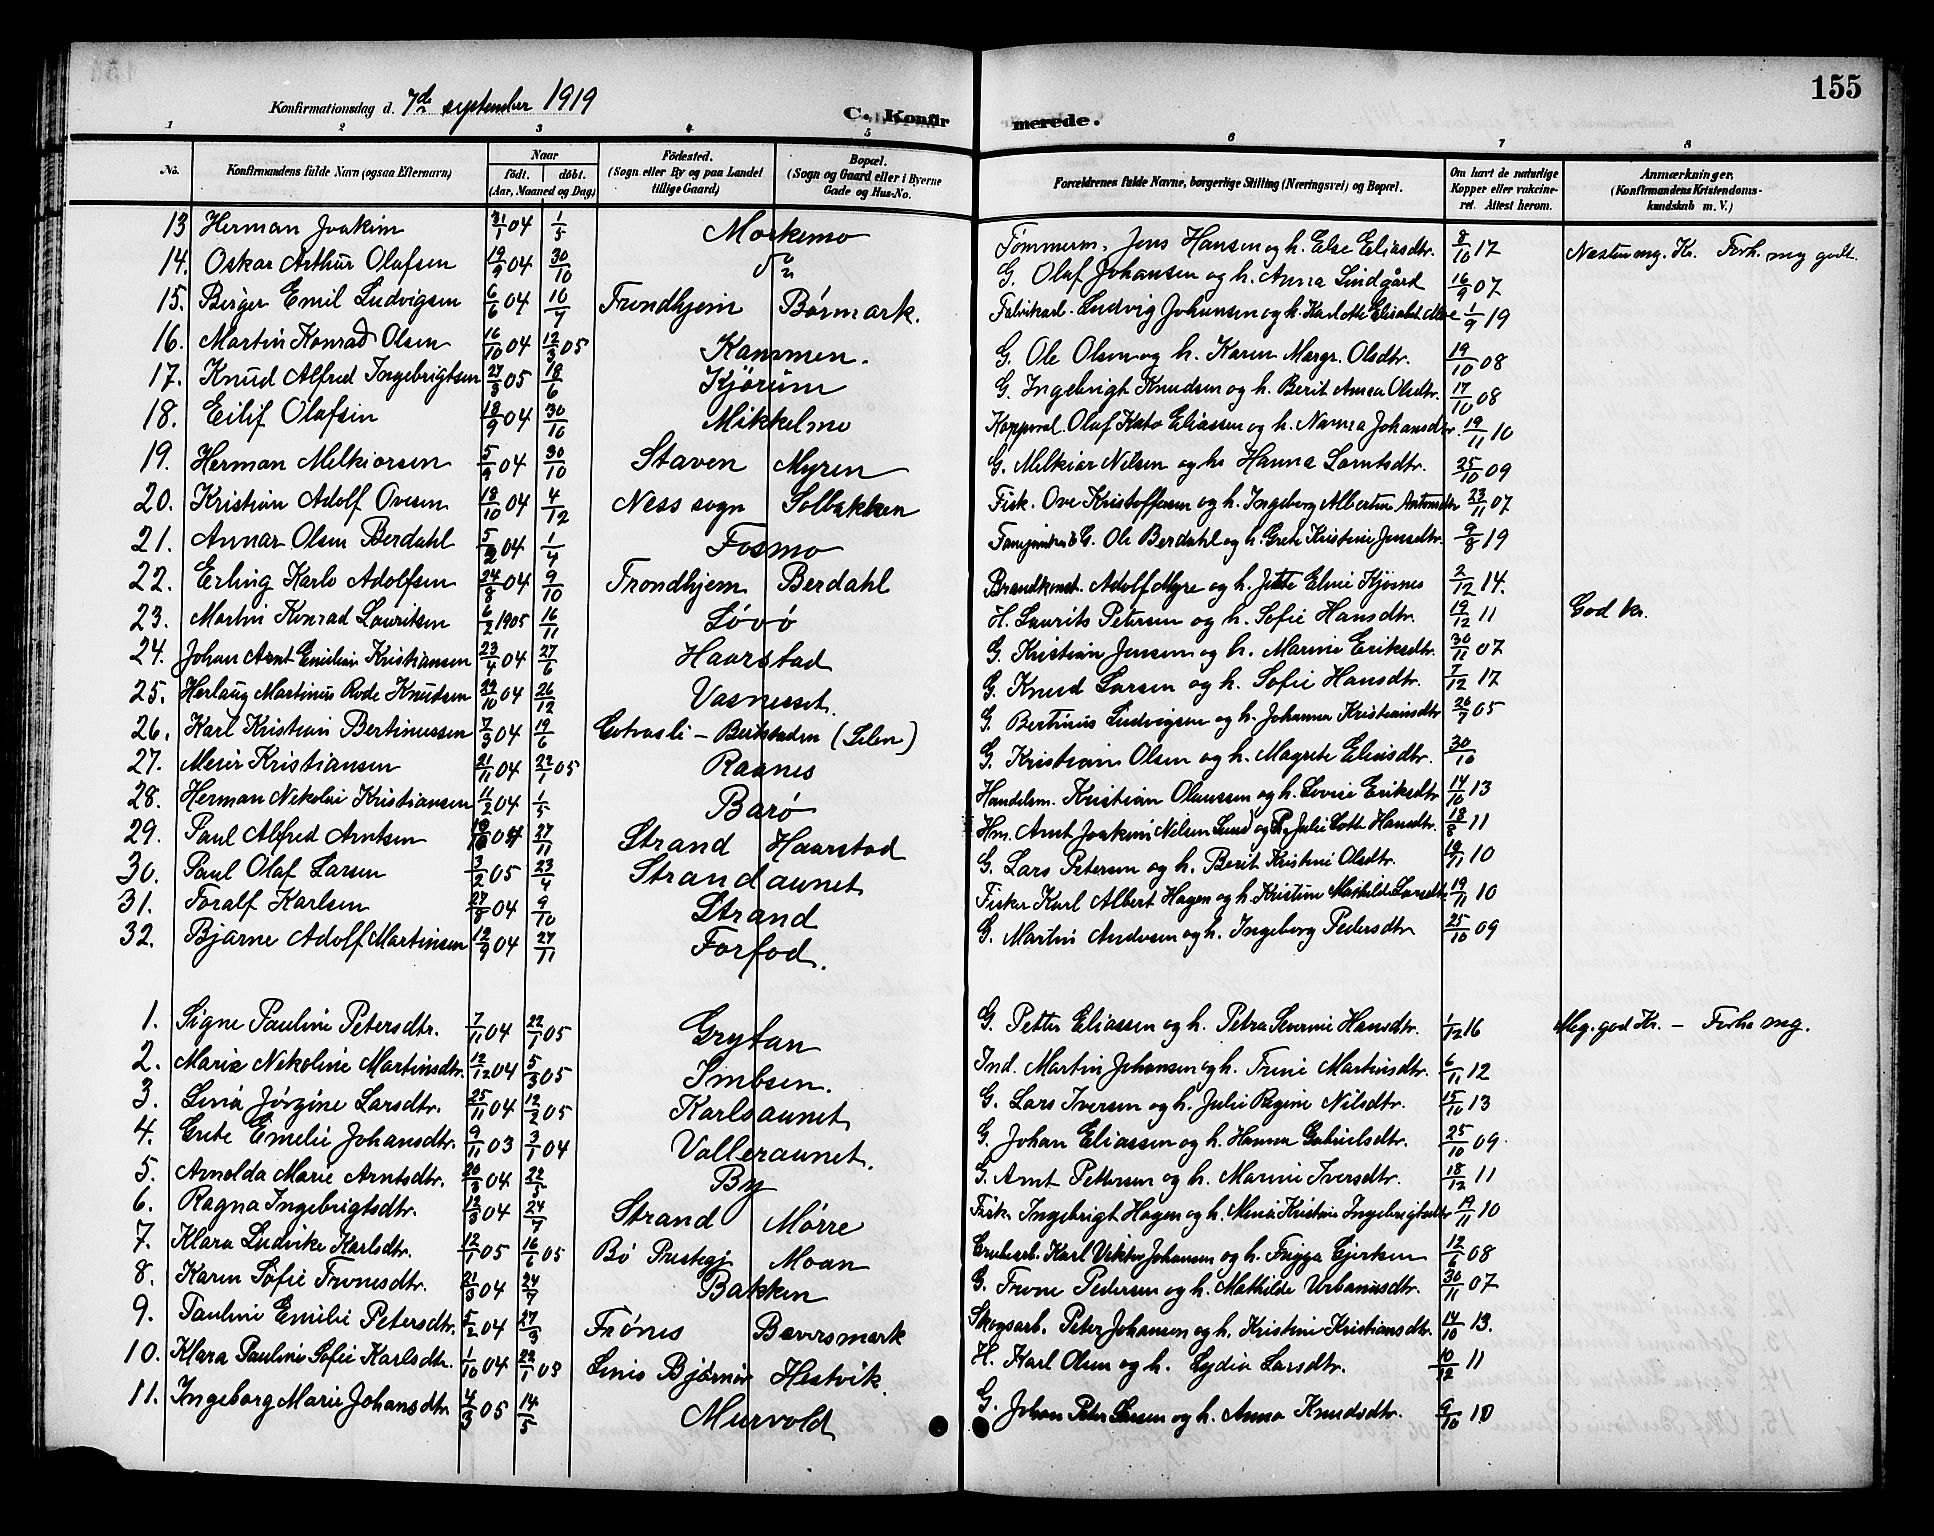 155
Konfirmationsdag d. 7de september 1919
C. Konfirmerede.
1 2 3 4 5 6 7 8
No. Konfirmandens fulde Navn (ogsaa Efternavn) Naar født. døbt. (Aar, Maaned og Dag) Födested. (Sogn eller By og paa Landet tillige Gaard) Bopæl. (Sogn og Gaard eller i Byerne Gade og Hus-No. Forældrenes fulde Navne, borgerlige Stilling (Næringsvei) og Bopæl. Om havt de naturlige Kopper eller vakcineret. Attest herom. Anmærkninger. (Konfirmandens Kristendomskundskab m. V.)
13 Herman Joakim 31/1 04 1/5 Morkemo Tømmerm. Jens Hansen og h. Else Eliasdtr. 8/10 17 Nesten mg. Kr. Forh. mg godt.
14. Oskar Arthur Olafsen 19/9 04 30/10 do G. Olaf Johansen og h. Anna Lindgård 16/9 07
15. Birger Emil Ludvigsen 6/6 04 10/7 Trondhjem Børmark. Fabrikarb. Ludvig Johansen og h. Karlotte Elisabet 1/9 19
16. Martin Konrad Olsen 16/10 04 12/3 05 Kammen. G. Ole Olsen og h. Karen Margr. Olsdtr. 19/10 08
17. Knud Alfred Ingebrigtsen 27/3 05 18/6 Kjørum G. Ingebrigt Knudsen og h. Berit Anna Olsdtr. 17/10 08
18. Eilif Olafsen 18/9 04 30/10 Mikkelmo Olaf Kato Eliassen og h. Nanna Johansdtr. 19/11 10
19. Herman Melkiorsen 5/9 04 30/10 Staven Myren G. Melkior Nilsen og h. Hanna Lorntsdtr. 25/10 09
20. Kristian Adolf Ovesen 18/10 04 4/12 Ness sogn Solbakken Fisk. Ove Kristoffersen og h. Ingeborg Albertine Antonsdtr 23/11 07
21. Annar Olsen Berdahl 5/2 04 1/4 Fosmo G. Ole Berdahl og h. Grete Kristine Jensdtr. 9/8 19
22. Erling Karlo Adolfsen 24/8 04 9/10 Trondhjem Berdahl Adolf Myre og h. Jitte Eline Kjøsnes 2/12 14.
23. Martin Konrad Lauritsen 6/2 1905 16/11 Løvø H. Laurits Petersen og h. Sofie Hansdtr. 19/12 11 God kr.
24. Johan Arnt Emilian Kristiansen 23/4 04 27/6 Haarstad G. Kristian Jensen og h. Marine Eriksdtr. 30/11 07
25. Herlaug Martinus Rode Knudsen 22/10 04 26/12 Vasnesset. G. Knud Larsen og h. Sofie Hansdtr. 7/12 17
26. Karl Kristian Bertinussen 7/3 04 19/6 G. Bertinus Ludvigsen og h. Johanna Kristiansdtr 26/7 05
27. Meier Kristiansen 21/11 04 22/1 05 Raanes G. Kristian Olsen og h. Magrete Eliasdtr. 30/10
28. Herman Nikolai Kristiansen 11/2 04 1/5 Barø Handelsm. Kristian Olaussen og h. Lovise Eriksdtr 14/10 13
29. Paul Alfred Arntsen 04 27/11 Strand Haarstad Hm. Arnt Joakim Nilsen Lund og h. Julie Lotte Hansdtr. 18/8 11
30. Paul Olaf Larsen 3/2 05 23/4 Strandaunet G. Lars Petersen og h. Berit Kristine Olsdtr. 19/11 10
31. Toralf Karlsen 27/8 04 9/10 Strand Fisker Karl Albert Hagen og h. Kristine Mathilde Larsdtr 19/11 10
32. Bjarne Adolf Martinsen 12/9 04 27/11 Forfod. G. Martin Andersen og h. Ingeborg Pedersdtr 25/10 09
1. Signe Pauline Petersdtr. 7/11 04 22/1 05 Grytan G. Petter Eliassen og h. Petra Severine Hansdtr. 1/12 16 Meg. god Kr. – Forh. mg.
2. Marie Nikoline Martinsdtr. 12/12 04 5/3 05 Imbsen. Ind. Martin Johansen og h. Trine Martinsdtr. 6/11 12
3. Lina Jørgine Larsdtr. 25/11 04 12/2 05 Karlsaunet G. Lars Iversen og h. Julie Regine Nilsdtr. 15/10 13
4. Grete Emelie Johansdtr. 9/11 03 3/1 04 Valleraunet. G. Johan Eliassen og h. Hanna Gabrielsdtr. 25/10 09.
5. Arnolda Marie Arntsdtr. 20/3 04 22/5 By G. Arnt Pettersen og h. Marine Iversdtr. 18/12 11
6. Ragna Ingebrigtsdtr. 12/3 04 24/7 Strand Mørre Fisk. Ingebrigt Hagen og h. Mina Kristine Ingebrigtsdtr 19/11 10
7. Klara Ludvike Karlsdtr. 12/1 05 16/6 05 Bø Prestegj Moan Grubearb. Karl Viktor Johansen og h. Frigga Gjerken 12/6 08
8. Karen Sofie Tronesdtr. 21/3 04 24/7 Bakken G. Trone Pedersen og h. Mathilde Urbanusdtr. 30/11 07
9. Pauline Emilie Petersdtr. 5/2 04 27/3 Frønes Beversmark Skogsarb. Peter Johansen og h. Kristine Kristiansdtr. 14/10 13.
10. Klara Pauline Sofie Karlsdtr. 1/10 04 22/1 05 Bjørnør Hestvik. H. Karl Olsen og h. Lydia Larsdtr. 10/12 11
11. Ingeborg Marie Johansdtr 4/3 05 14/5 Murvold G. Johan Peter Larsen og h. Anna Knudsdtr. 9/10 10